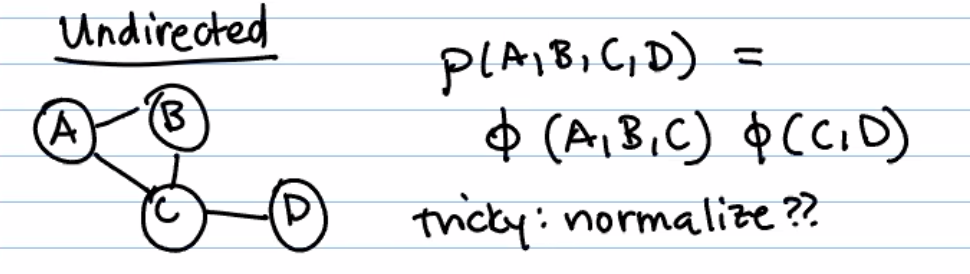 Undirected
p(A,B,C,D) =
ϕ (A,B,C) ϕ(C,D)
tricky: normalize??
A
B
C
D